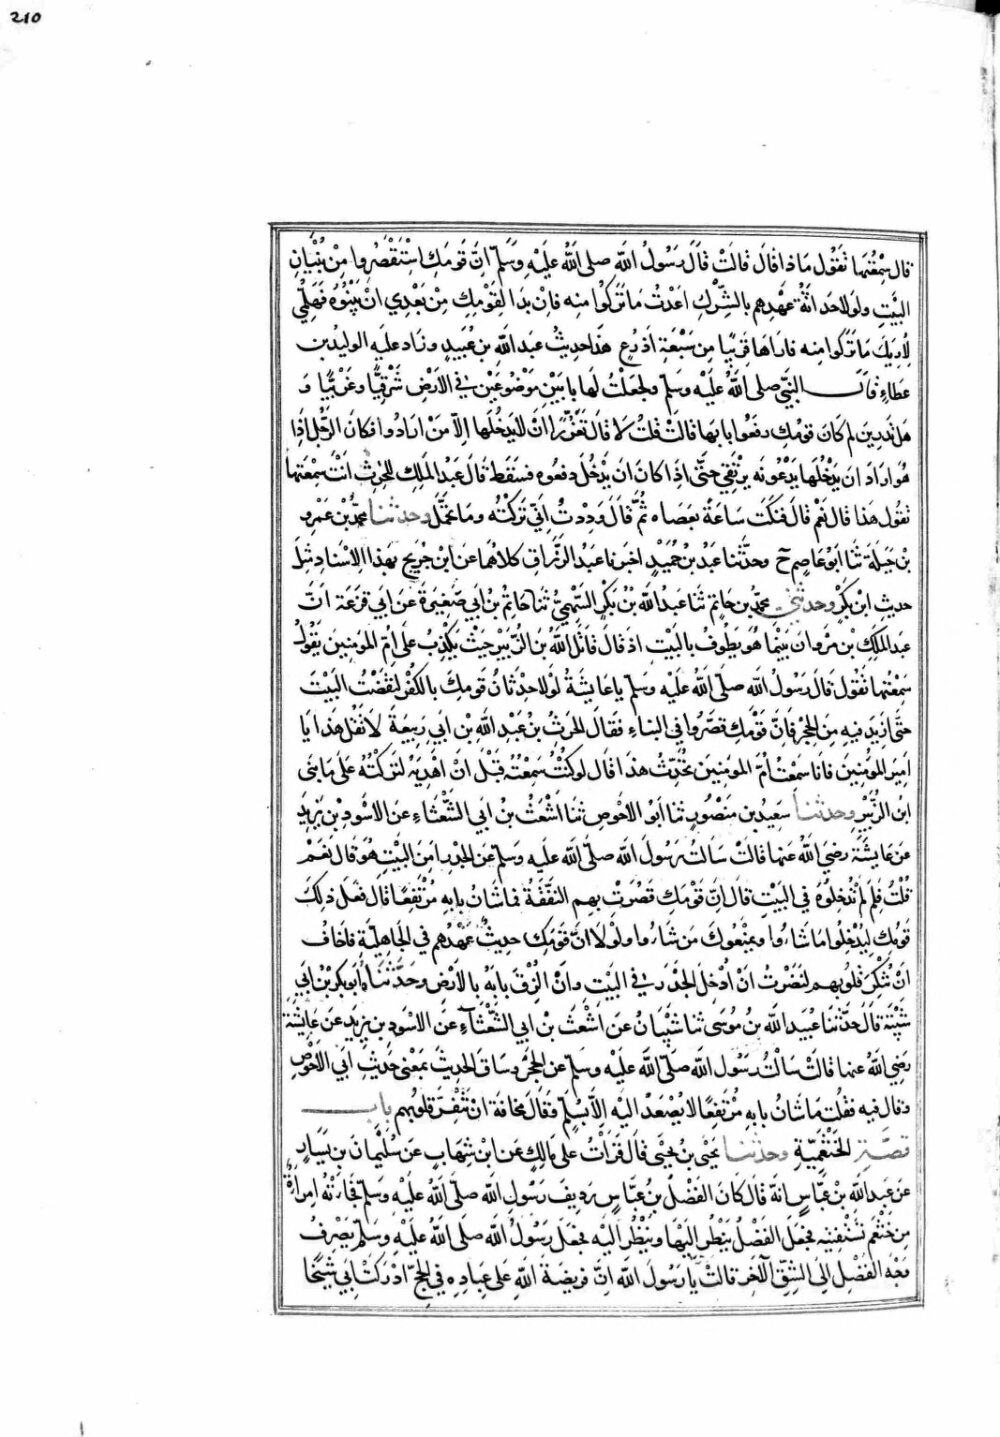 210
قال سمعتها تقول ماذا قال قالت قال رسول الله صلى الله عليه وسلم ان قومك استقصروا من بنيان
البيت ولولا حداثة عهدهم بالشرك اعدت ما تركوا منه فان بدا لقومك من بعدي ان يبنوه فهلمي
لاريك ما تركوا منه فاراها قريبا من سبعة اذرع هذا حديث عبد الله بن عبيد وزاد عليه الوليد بن
عطاء قال النبي صلى الله عليه وسلم ولجعلت لها بابين موضوعين في الارض شرقيا وغربيا و
هل تدرين لم كان قومك رفعوا بابها قالت قلت لا قال تعززا ان لا يدخلها الا من ارادوا فكان الرجل اذا
هو اراد ان يدخلها يدعونه يرتقي حتى اذا كان ان يدخل دفعوه فسقط قال عبد الملك للحرث انت سمعتها
تقول هذا قال نعم قال فنكت ساعة بعصاه ثم قال وددت اني تركته وما تحمل وحدثنا محمد بن عمرو
بن جبلة ثنا ابو عاصم ح وحدثنا عبد بن حميد اخبرنا عبد الرزاق كلاهما عن ابن جريج بهذا الاسناد مثل
حديث ابن بكر وحدثني محمد بن حاتم ثنا عبد الله بن بكر السهمي ثنا حاتم بن ابي صغيرة عن ابي قزعة ان
عبد الملك بن مروان بينما هو يطوف بالبيت اذ قال قاتل الله بن الزبير حيث يكذب على ام المومنين يقول
سمعتها تقول قال رسول الله صلى الله عليه وسلم يا عايشة لولا حدثان قومك بالكفر لنقضت البيت
حتى ازيد فيه من الحجر فان قومك قصروا في البناء فقال الحرث بن عبد الله بن ابي ربيعة لا تقل هذا يا
امير المومنين فانا سمعت ام المومنين تحدث هذا قال لو كنت سمعته قبل ان اهدمه لتركته على ما بنى
ابن الزبير وحدثنا سعيد بن منصور ثنا ابو الاحوص ثنا اشعث بن ابي الشعثاء عن الاسود بن يزيد
عن عايشة رضي الله عنها قالت سالت رسول الله صلى الله عليه وسلم عن الجدر امن البيت هو قال نعم
قلت فلم لم تدخلوه في البيت قال ان قومك قصرت بهم النفقة فما شان بابه مرتفعا قال فعل ذلك
قومك ليدخلوا ما شاءوا ويمنعوك من شاءوا ولولا ان قومك حديث عهدهم في الجاهلية فاخاف
ان تنكر قلوبهم لنضرت ان ادخل الجدر في البيت وان الزق بابه بالارض وحدثناه ابو بكر بن ابي
شيبة قال حدثنا عبيد الله بن موسى ثنا شيبان عن اشعث بن ابي الشعثاء عن الاسود بن يزيد عن عايشة
رضي الله عنها قالت سالت رسول الله صلى الله عليه وسلم عن الحجر وساق الحديث بمعنى حديث ابي الاحوص
وقال فيه فقلت ما شان بابه مرتفعا لا يصعد اليه الا بسلم وقال مخافة ان تنفر قلوبهم باب
قصة الخثعمية وحدثنا يحيى بن يحيى قال قرات على مالك عن ابن شهاب عن سليمان بن يسار
عن عبد الله بن عباس انه قال كان الفضل بن عباس رديف رسول الله صلى الله عليه وسلم فجاءته امراة
من خثعم تستفتيه فجعل الفضل ينظر اليها وينظر اليه فجعل رسول الله صلى الله عليه وسلم يصرف
وجه الفضل الى الشق الآخر قالت يا رسول الله ان فريضة الله على عباده في الحج ادركت ابي شيخا